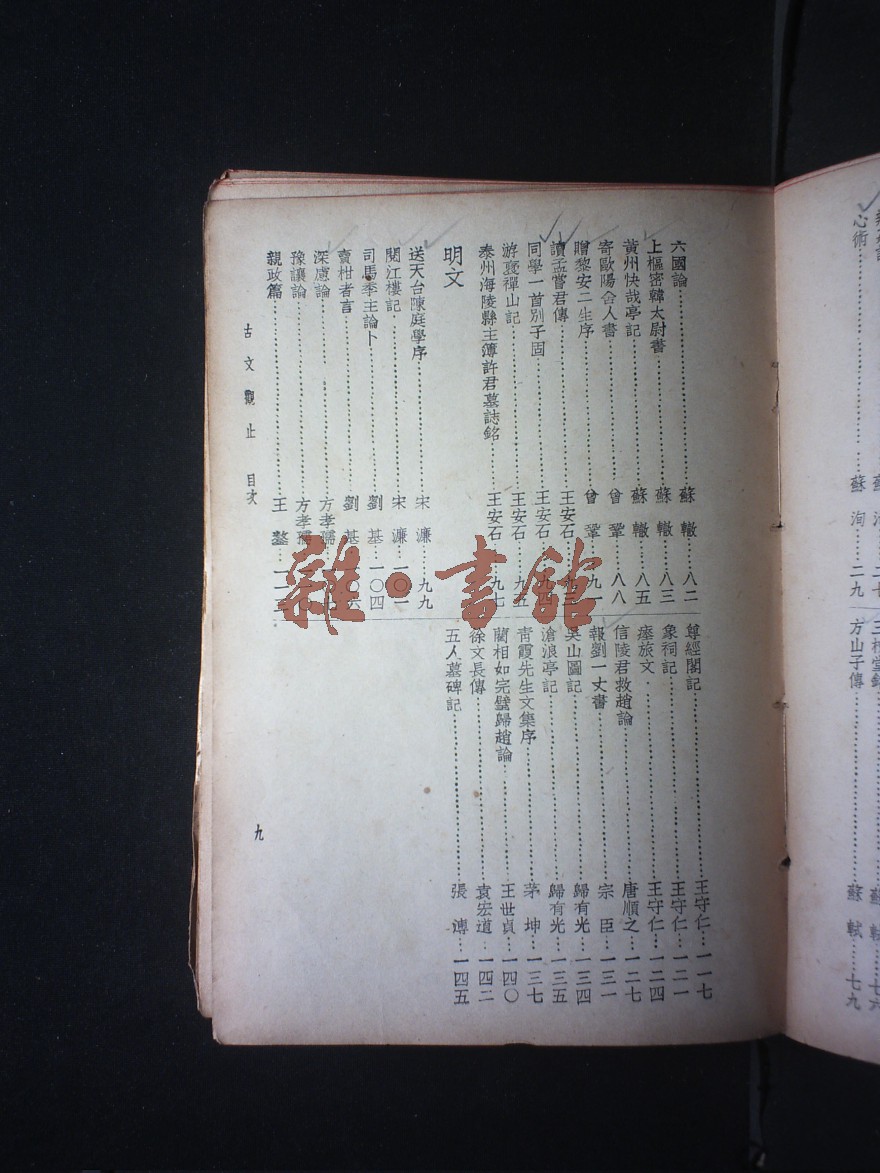 六國論 蘇轍 八二
上樞密韓太尉書 蘇轍 八三
黃州快哉亭記 蘇轍 八五
寄歐陽舍人書 曾鞏 八八
贈黎安二生序 曾鞏 九一
讀孟嘗君傳 王安石
同學一首別子固 王安石 九四
游褒禪山記 王安石 九五
泰州海陵縣主簿許君墓誌銘 王安石 九七
明文
送天台陳庭學序 宋濂 九九
閱江樓記 宋濂 一〇一
司馬季主論卜 劉基 一〇四
賣柑者言 劉基 一〇六
深慮論 方孝孺
豫讓論 方孝孺
親政篇 王鏊
尊經閣記 王守仁 一一七
象祠記 王守仁 一二一
瘞旅文 王守仁 一二四
信陵君救趙論 唐順之 一二七
報劉一丈書 宗臣 一三一
吳山圖記 歸有光 一三四
滄浪亭記 歸有光 一三五
青霞先生文集序 茅坤 一三七
藺相如完璧歸趙論 王世貞 一四〇
徐文長傳 袁宏道 一四二
五人墓碑記 張溥 一四五
古文觀止 目次
九
心術 蘇洵 二九
方山子傳 蘇軾 七九
雜·書館